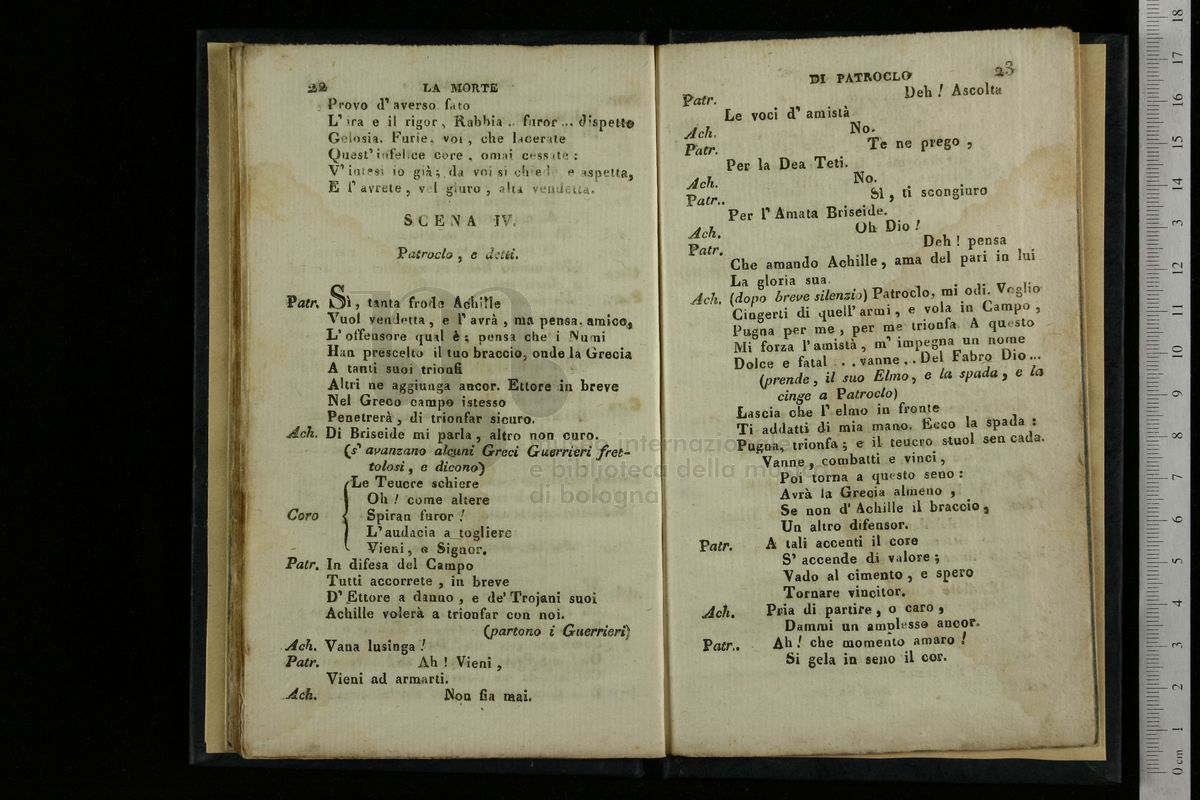 22 LA MORTE
Provo d' averso fato
L' ira e il rigor, Rabbia .. furor ... dispetto
Gelosia. Furie, voi, che lacerate
Quest' infelice core, omai cessate:
V' intesi io già; da voi si e aspetta,
E l' avrete, vel giuro, alta vendetta.
SCENA IV.
Patroclo, e detti.
Patr. Sì, tanta frode Achille
Vuol vendetta, e l' avrà, ma pensa, amico,
L' offensore qual è; pensa che i Numi
Han prescelto il tuo braccio, onde la Grecia
A tanti suoi trionfi
Altri ne aggiunga ancor. Ettore in breve
Nel Greco campo istesso
Penetrerà, di trionfar sicuro.
Ach. Di Briseide mi parla, altro non curo.
(s' avanzano alcuni Greci Guerrieri fret-
tolosi, e dicono)
Le Teucre schiere
Oh! come altere
Coro Spiran furor!
L' audacia a togliere
Vieni, o Signor.
Patr. In difesa del Campo
Tutti accorrete, in breve
D' Ettore a danno, e de' Trojani suoi
Achille volerà a trionfar con noi.
(partono i Guerrieri)
Ach. Vana lusinga!
Patr. Ah! Vieni,
Vieni ad armarti.
Ach. Non fia mai.
DI PATROCLO 23
Patr. Deh! Ascolta
Le voci d' amistà
Ach. No.
Patr. Te ne prego,
Per la Dea Teti.
Ach. No.
Patr.. Sì, ti scongiuro
Per l' Amata Briseide.
Ach. Oh Dio!
Patr. Deh! pensa
Che amando Achille, ama del pari in lui
La gloria sua.
Ach. (dopo breve silenzio) Patroclo, mi odi. Voglio
Cingerti di quell' armi, e vola in Campo,
Pugna per me, per me trionfa. A questo
Mi forza l' amistà, m' impegna un nome
Dolce e fatal ... vanne .. Del Fabro Dio ...
(prende, il suo Elmo, e la spada, e la
cinge a Patroclo)
Lascia che l' elmo in fronte
Ti addatti di mia mano. Ecco la spada:
Pugna, trionfa; e il teucro stuol sen cada.
Vanne, combatti e vinci,
Poi torna a questo seno:
Avrà la Grecia almeno,
Se non d' Achille il braccio,
Un altro difensor.
Patr. A tali accenti il core
S' accende di valore;
Vado al cimento, e spero
Tornare vincitor.
Ach. Pria di partire, o caro,
Dammi un amplesso ancor.
Patr.. Ah! che momento amaro!
Si gela in seno il cor.
museo internazionale
e biblioteca della musica
di bologna
0 cm 1 2 3 4 5 6 7 8 9 10 11 12 13 14 15 16 17 18